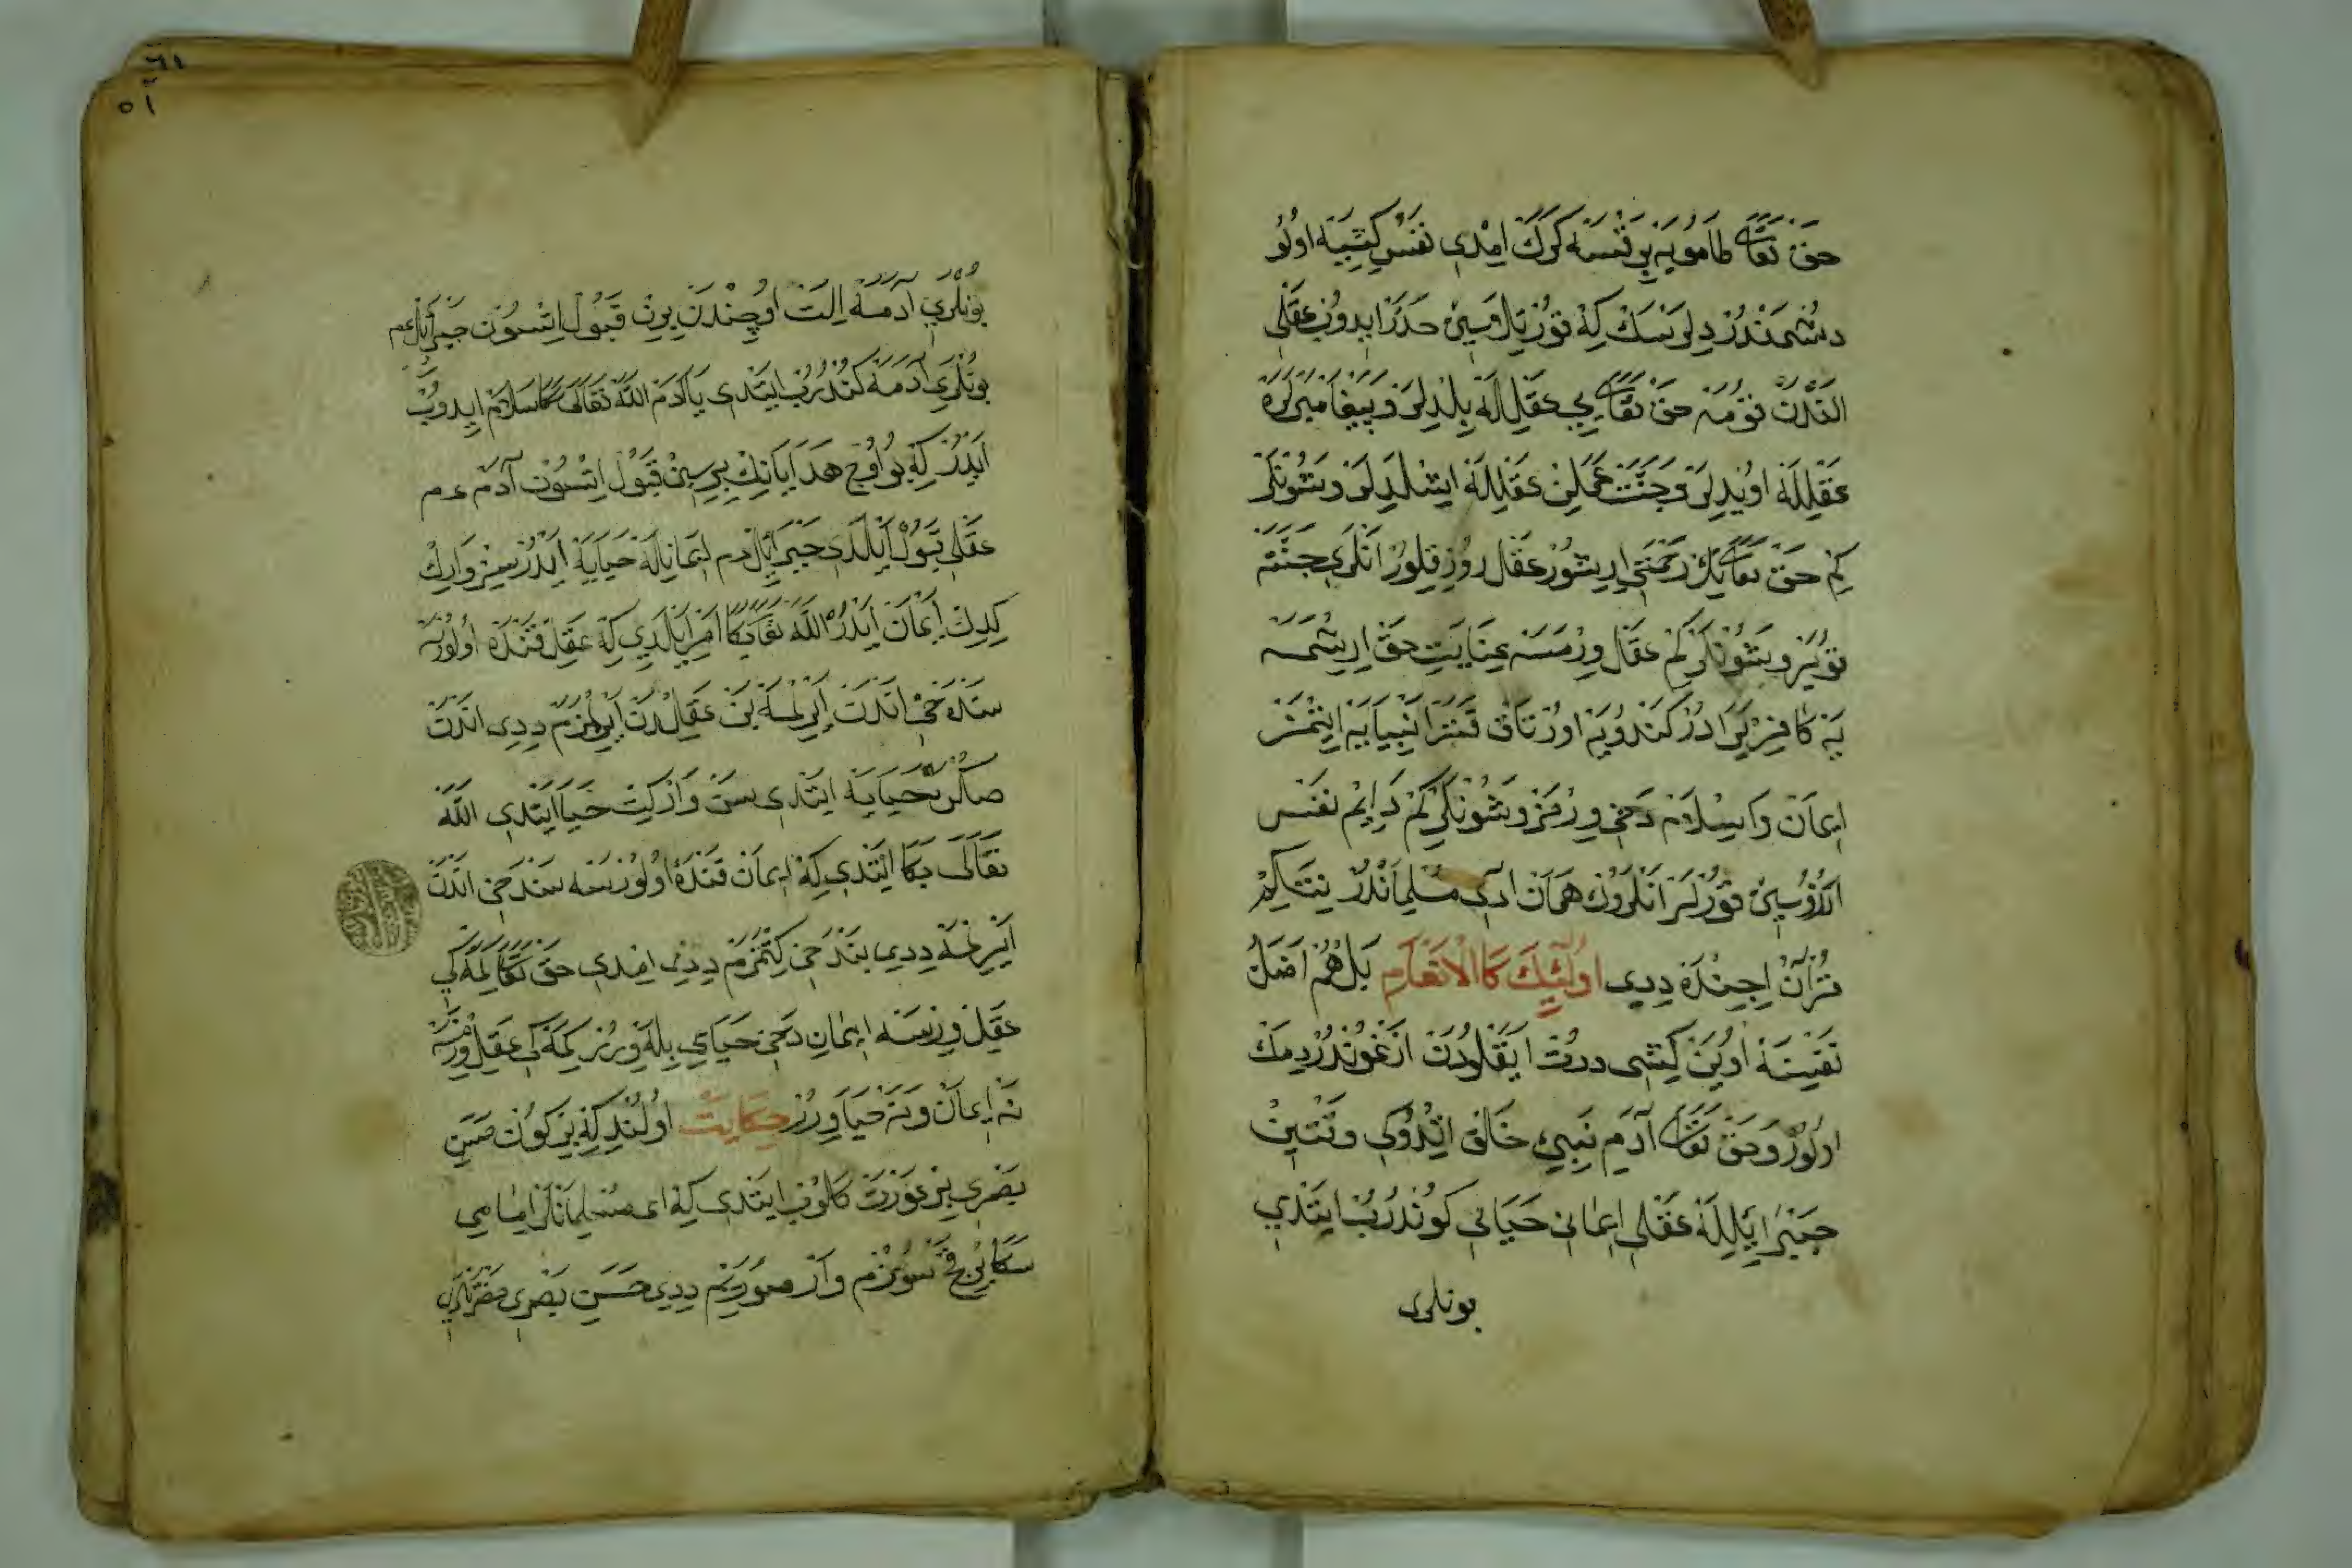 حق تعالى طامويه بر قسنه كرك امدى نفس كشيه اولو
دشمندر دلرسك كه قورتلاسين حذر ايدوب عقلى
الندن قومه حق تعالى يى عقلله بلديلر و پيغامبرلره
عقلله اويدلر و جنت عملن عقلله ايشلديلر و شونلر
كم حق تعالينك رحمتى اريشور عقل روزى قلور انلرى جنته
قويرو شونلر كم عقل ورمسه عنايت حق ارشمسه
يه كافرلر در كندويه اورتاق
ايمان و اسلام دخى ورمز و شونلر كم دايم نفس
ارزوسين قورلر انلروك همان ادى مسلماندر نتاكم
قرآن اچنده ديدى اولئك كالانعام بل هم اضل
نفسنه اوين كشى درت ايقلودن ازغوندر دمك
اولور و حق تعالى آدم نبيى خلق اتدوكى وقتين
جبرائيلله عقلى ايمانى حيايى كوندرب ايتدى
بونلرى
٦١
٥١
بونلرى آدمه الت اوچندن برين قبول اتسون جبرائل عم
بونلرى آدمه كندرب ايتدى يا آدم الله تعالى سكا سلام ايدوب
ايدر كه بو اوچ هدايانك برسين قبول اتسون آدم عم
عقلى قبول ايلدى جبرائل عم ايمانيله حيايه ايدر سز وارك
كدك ايمان ايدر الله تعالى بكا امر ايلدى كه عقل قنده اولورسه
سنده دخى اندن ايرلمه بن عقلدن ايرلمزم ديدى اندن
صكره حيايه ايتدى سن وار كت حيا ايتدى الله
تعالى بكا ايتدى كه ايمان قنده اولورسه سن دخى اندن
ايرلمه ديدى بن دخى كتمزم ديدى امدى حق تعالى كمه كى
عقل ورسه ايمان دخى حيايى بله ورر كمه كى عقل ورمسه
نه ايمان و نه حيا ورر حكايت اولندى كه بر كون حسن
بصرى بر عورت كلوب ايتدى كه اى مسلمانلر امامى
سكا بر قچ سوزم وار صورريم ديدى حسن بصرى حضرتلرى